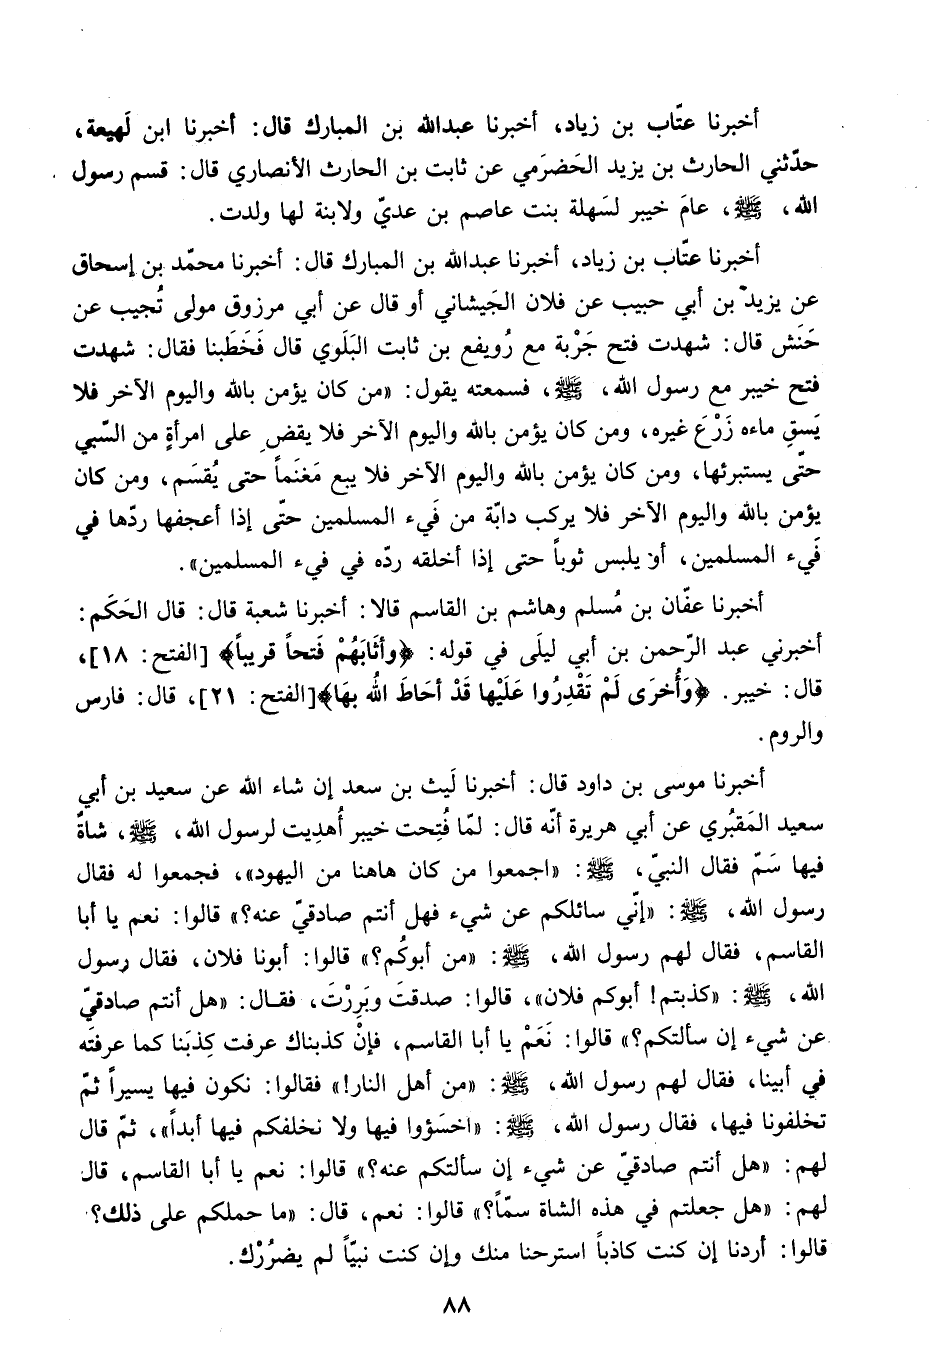 أخبرنا عتّاب بن زياد، أخبرنا عبدالله بن المبارك قال: أخبرنا ابن لَهيعة،
حدّثني الحارث بن يزيد الحَضرَمي عن ثابت بن الحارث الأنصاري قال: قسم رسول
الله، ﷺ، عامَ خيبر لسَهلة بنت عاصم بن عديّ ولابنة لها ولدت.
أخبرنا عتّاب بن زياد، أخبرنا عبدالله بن المبارك قال: أخبرنا محمّد بن إسحاق
عن يزيد بن أبي حبيب عن فلان الجَيشاني أو قال عن أبي مرزوق مولى تُجيب عن
حَنَش قال: شهدت فتح جَرْبة مع رُويفع بن ثابت البَلَوي قال فَخَطَبنا فقال: شهدت
فتح خيبر مع رسول الله، ﷺ، فسمعته يقول: «من كان يؤمن بالله واليوم الآخر فلا
يَسقِ ماءه زَرْعَ غيره، ومن كان يؤمن بالله واليوم الآخر فلا يقضِ على امرأةٍ من السّبي
حتّى يستبرئها، ومن كان يؤمن بالله واليوم الآخر فلا يبع مَغنَماً حتى يُقسَم، ومن كان
يؤمن بالله واليوم الآخر فلا يركب دابّة من فَيء المسلمين حتّى إذا أعجفها ردّها في
فَيء المسلمين، أو يلبس ثوباً حتى إذا أخلقه ردّه في فيء المسلمين».
أخبرنا عفّان بن مُسلم وهاشم بن القاسم قالا: أخبرنا شعبة قال: قال الحَكَم:
أخبرني عبد الرّحمن بن أبي ليلَى في قوله: ﴿وأثَابَهُمْ فَتحاً قريباً﴾ [الفتح: ١٨]،
قال: خيبر. ﴿وَأُخرَى لَمْ تَقْدِرُوا عَلَيْها قَدْ أحَاطَ اللهُ بهَا﴾[الفتح: ٢١]، قال: فارس
والروم.
أخبرنا موسى بن داود قال: أخبرنا لَيث بن سعد إن شاء الله عن سعيد بن أبي
سعيد المَقبُري عن أبي هريرة أنّه قال: لمّا فُتحت خيبر أُهدِيت لرسول الله، ﷺ، شاةٌ
فيها سَمّ فقال النبيّ، ﷺ: «اجمعوا من كان هاهنا من اليهود»، فجمعوا له فقال
رسول الله، ﷺ: «إنّي سائلكم عن شيء فهل أنتم صادقيّ عنه؟» قالوا: نعم يا أبا
القاسم، فقال لهم رسول الله، ﷺ: «من أبوكُم؟» قالوا: أبونا فلان، فقال رسول
الله، ﷺ: «كذبتم! أبوكم فلان»، قالوا: صدقتَ وبَرِرْتَ، فقال: «هل أنتم صادقيّ
عن شيء إن سألتكم؟» قالوا: نَعَمْ يا أبا القاسم، فإنْ كذبناك عرفت كِذبَنا كما عرفتَه
في أبينا، فقال لهم رسول الله، ﷺ: «من أهل النار!» فقالوا: نكون فيها يسيراً ثمّ
تخلفونا فيها، فقال رسول الله، ﷺ: «اخسَؤوا فيها ولا نخلفكم فيها أبداً»، ثمّ قال
لهم: «هل أنتم صادقيّ عن شيء إن سألتكم عنه؟» قالوا: نعم يا أبا القاسم، قال
لهم: «هل جعلتم في هذه الشاة سمّاً؟» قالوا: نعم، قال: «ما حملكم على ذلك؟
قالوا: أردنا إن كنت كاذباً استرحنا منك وإن كنت نبيّاً لم يضرُرْك.
٨٨